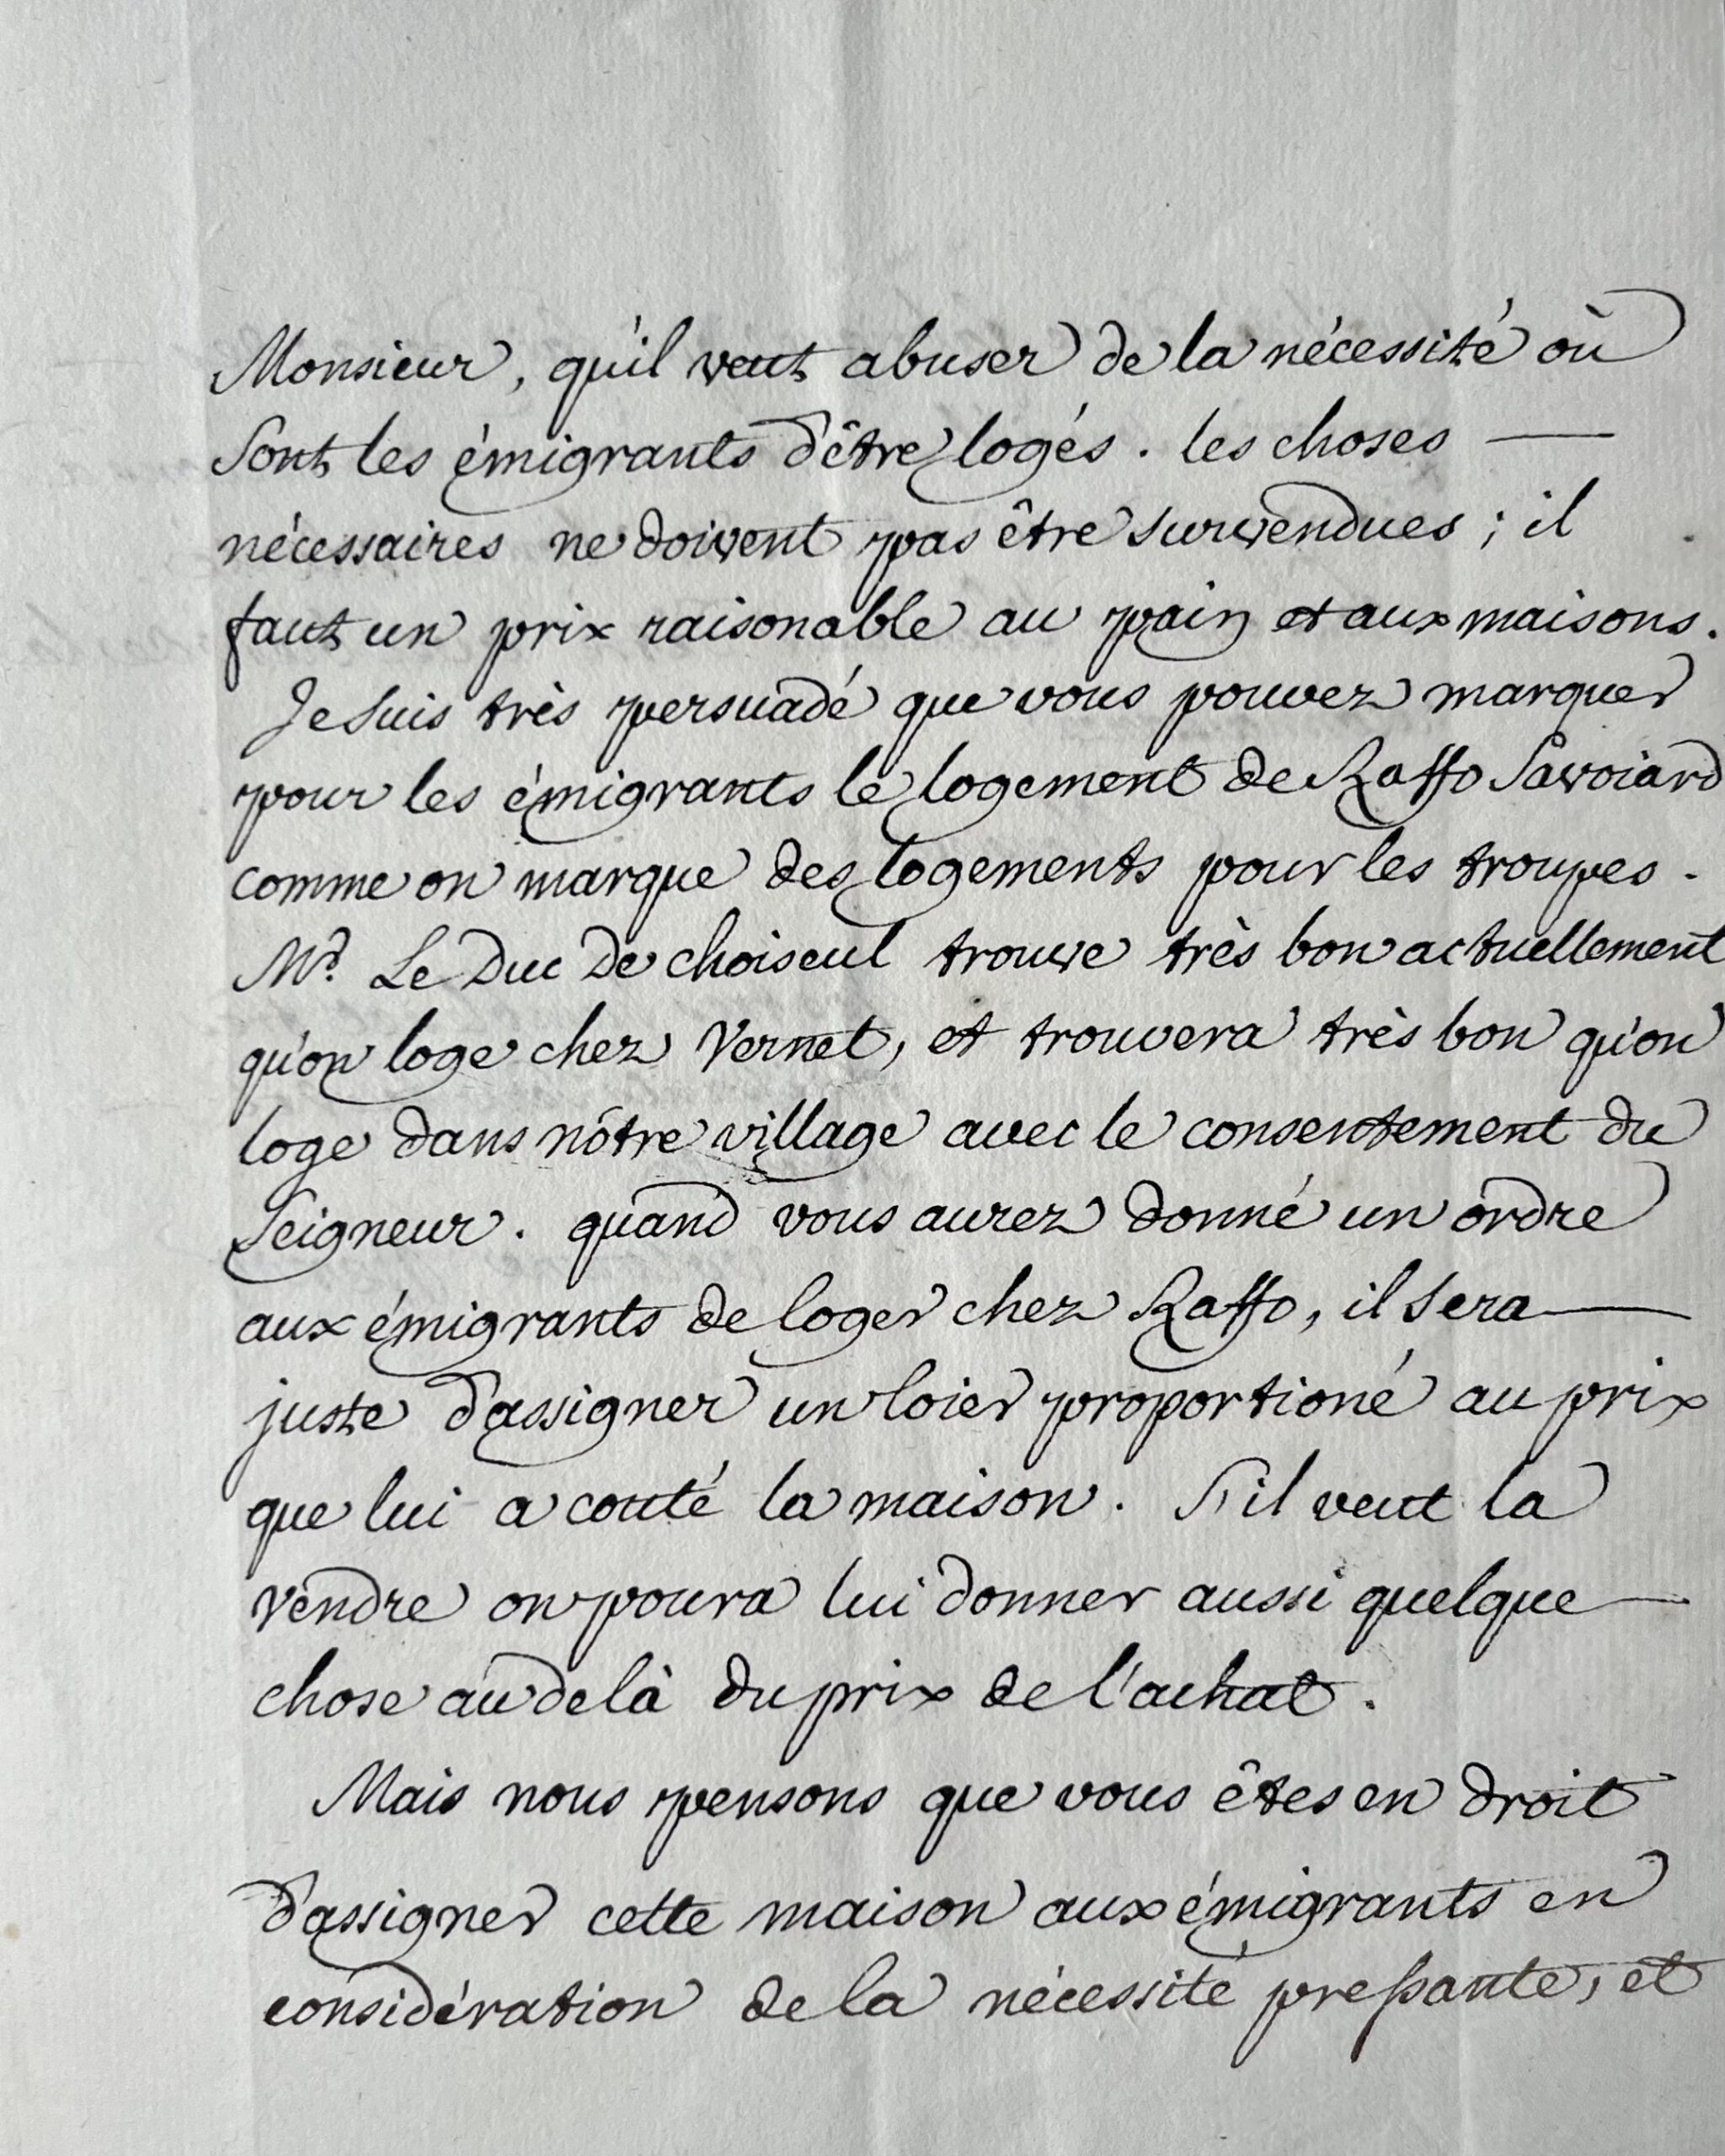 Monsieur, qu'il veut abuser de la nécessité où
sont les émigrants d'être logés. les choses —
nécessaires ne doivent pas être survendues; il
faut un prix raisonable au pain et aux maisons.
Je suis très persuadé que vous pouvez marquer
pour les émigrants le logement de Raffo Savoiard
comme on marque des logements pour les troupes.
Mr. Le Duc De choiseul trouve très bon actuellement
qu'on loge chez Vernet, et trouvera très bon qu'on
loge dans nôtre village avec le consentement du
Seigneur. quand vous aurez donné un ordre
aux émigrants de loger chez Raffo, il sera —
juste d'assigner un loier proportioné au prix
que lui a couté la maison. S'il veut la
vendre on poura lui donner aussi quelque —
chose au delà du prix de l'achat.
Mais nous pensons que vous êtes en droit
d'assigner cette maison aux émigrants en
considération de la nécessité pressante, et